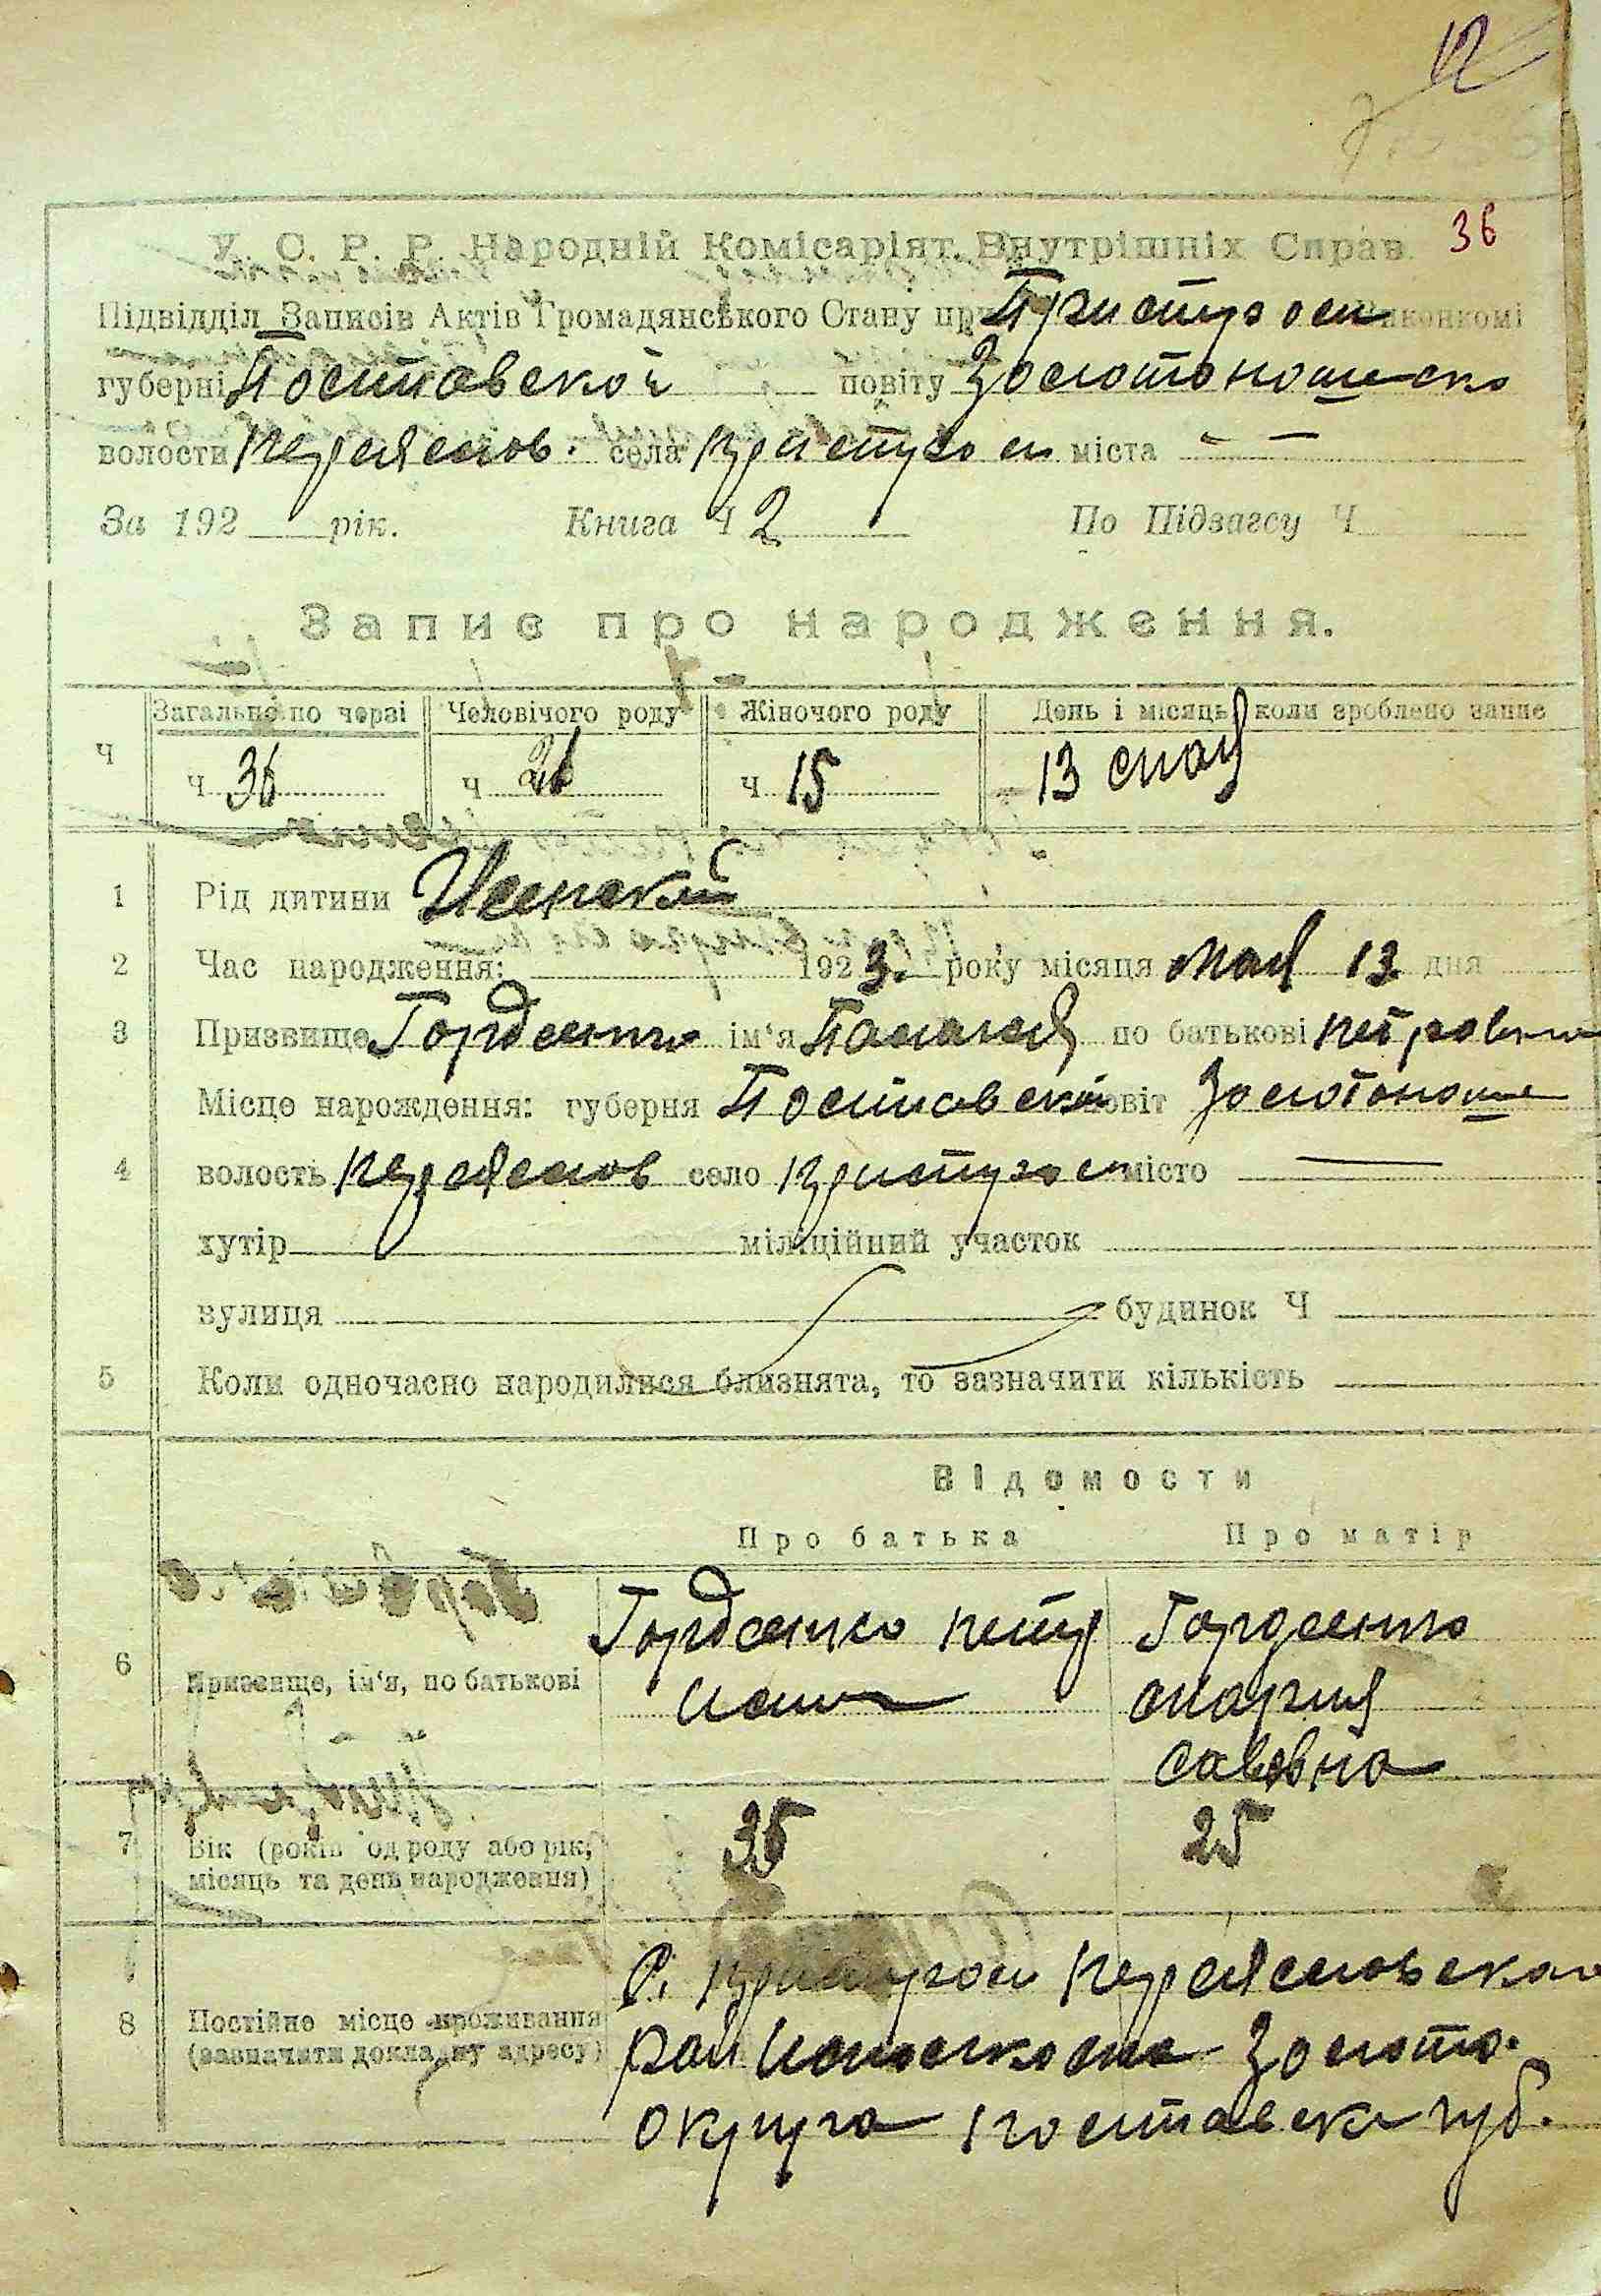 12
36
У. С. Р. Р. Народній Комісаріят Внутрішніх Справ
Підвідділ Записів Актів Громадянського Стану при Пристром Виконкомі
губерні Полтавской повіту Золотоношеско
волости Переяслов. села Пристром міста — —
За 192 рік. Книга Ч 2 По Підзагсу Ч
Запис про народження.
Загально по черзі Человічого роду Жіночого роду День і місяць, коли зроблено запис
Ч Ч 36 Ч Ч 15 13 мая
1 Рід дитини Женский
2 Час народження: 1923. року місяця мая 13 дня
3 Призвище Гордеенко ім'я Палагея по батькові Петровна
Місце нарождення: губерня Полтавской повіт Золотоноше
4 волость Переяслов село Пристром місто —
хутір міліційний участок
вулиця будинок Ч
5 Коли одночасно народилися близнята, то зазначити кількість
Відомости
Про батька Про матір
6 Призвище, ім'я, по батькові
Гордеенко Петр Гордеенко
Мария
Савовна
7 Вік (років од роду або рік, місяць та день народження) 35 25
8 Постійне місце проживання (зазначити докладну адресу)
С. Пристром Переясловского
рай Золото.
округа Полтавск губ.